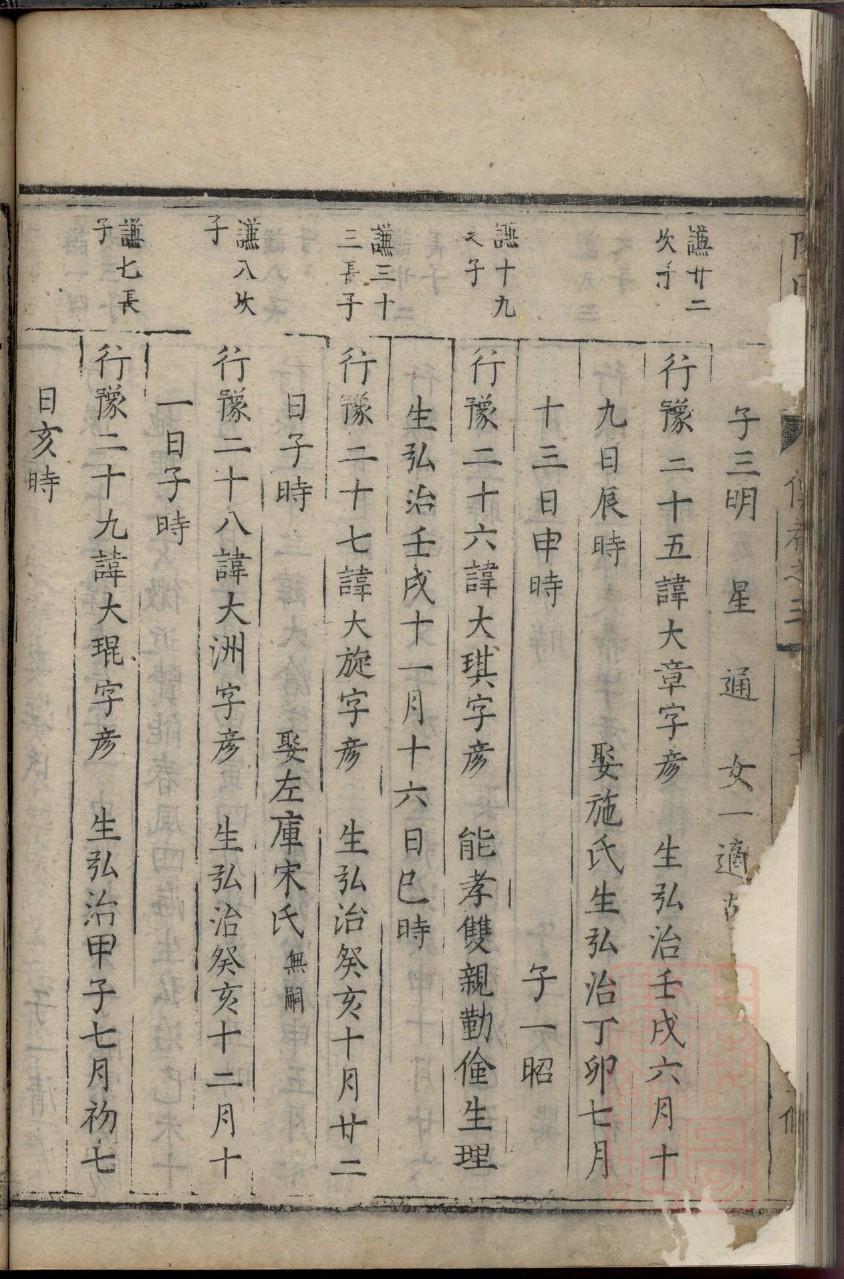 子三明　星　通　女一適
謙廿二
次子
行豫二十五諱大章字彥　生弘治壬戌六月十
九日辰時　娶施氏生弘治丁卯七月
十三日申時　子一昭
謙十九
之子
行豫二十六諱大琪字彥　能孝雙親勤儉生理
生弘治壬戌十一月十六日巳時
謙三十
三長子
行豫二十七諱大旋字彥　生弘治癸亥十月廿二
日子時　娶左庫宋氏無嗣
謙八次
子
行豫二十八諱大洲字彥　生弘治癸亥十二月十
一日子時
謙七長
子
行豫二十九諱大琨字彥　生弘治甲子七月初七
日亥時